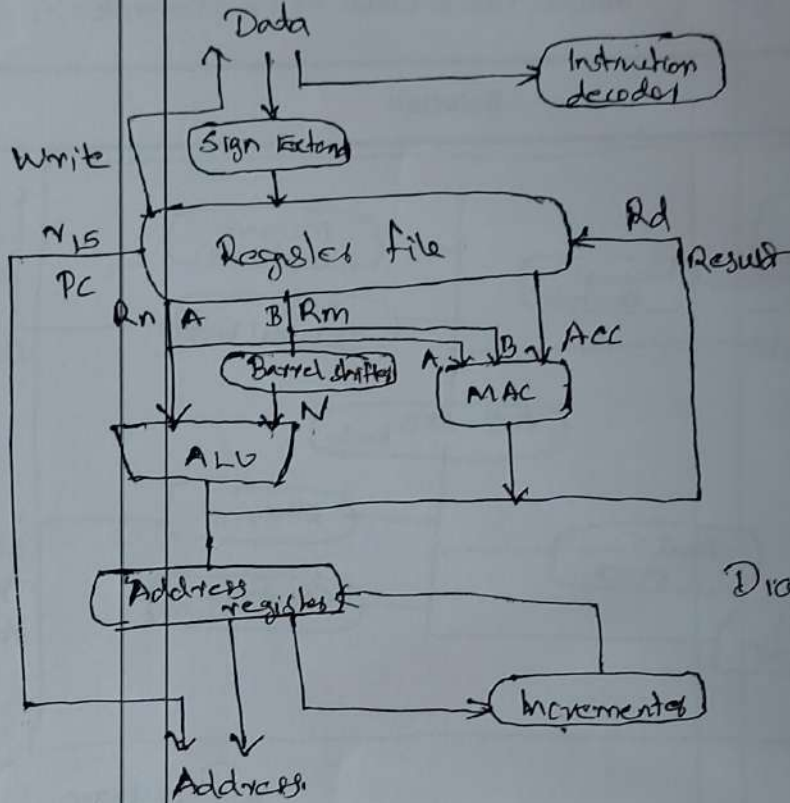 Dada
Instruction
decoder
Sign Extend
Write
Rd
Register file
r15
Result
PC
Rn A B Rm
ACC
A B
Barrel shifter
MAC
N
ALU
Address
register
Dia
Incrementer
Address.